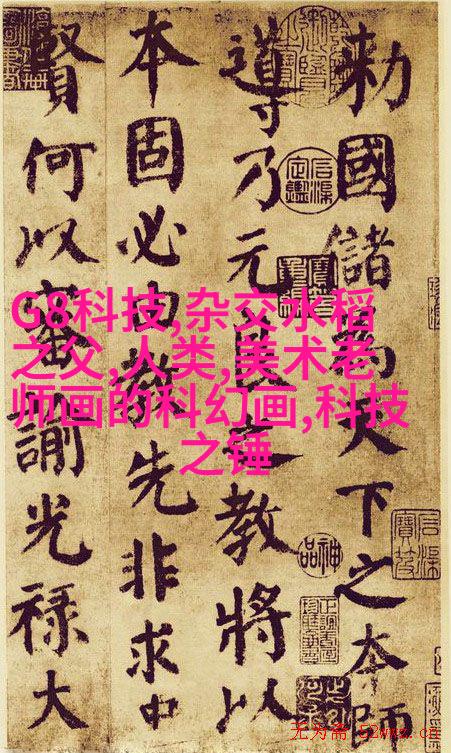 勅國儲為天下之本師
導乃元良之教將以
本固必由教先非求中
賢何以審諭光祿大
G8科技,杂交水稻
之父,人类,美术老
师画的科幻画,科技
之锤
神品
无为斋 52wwz.cn